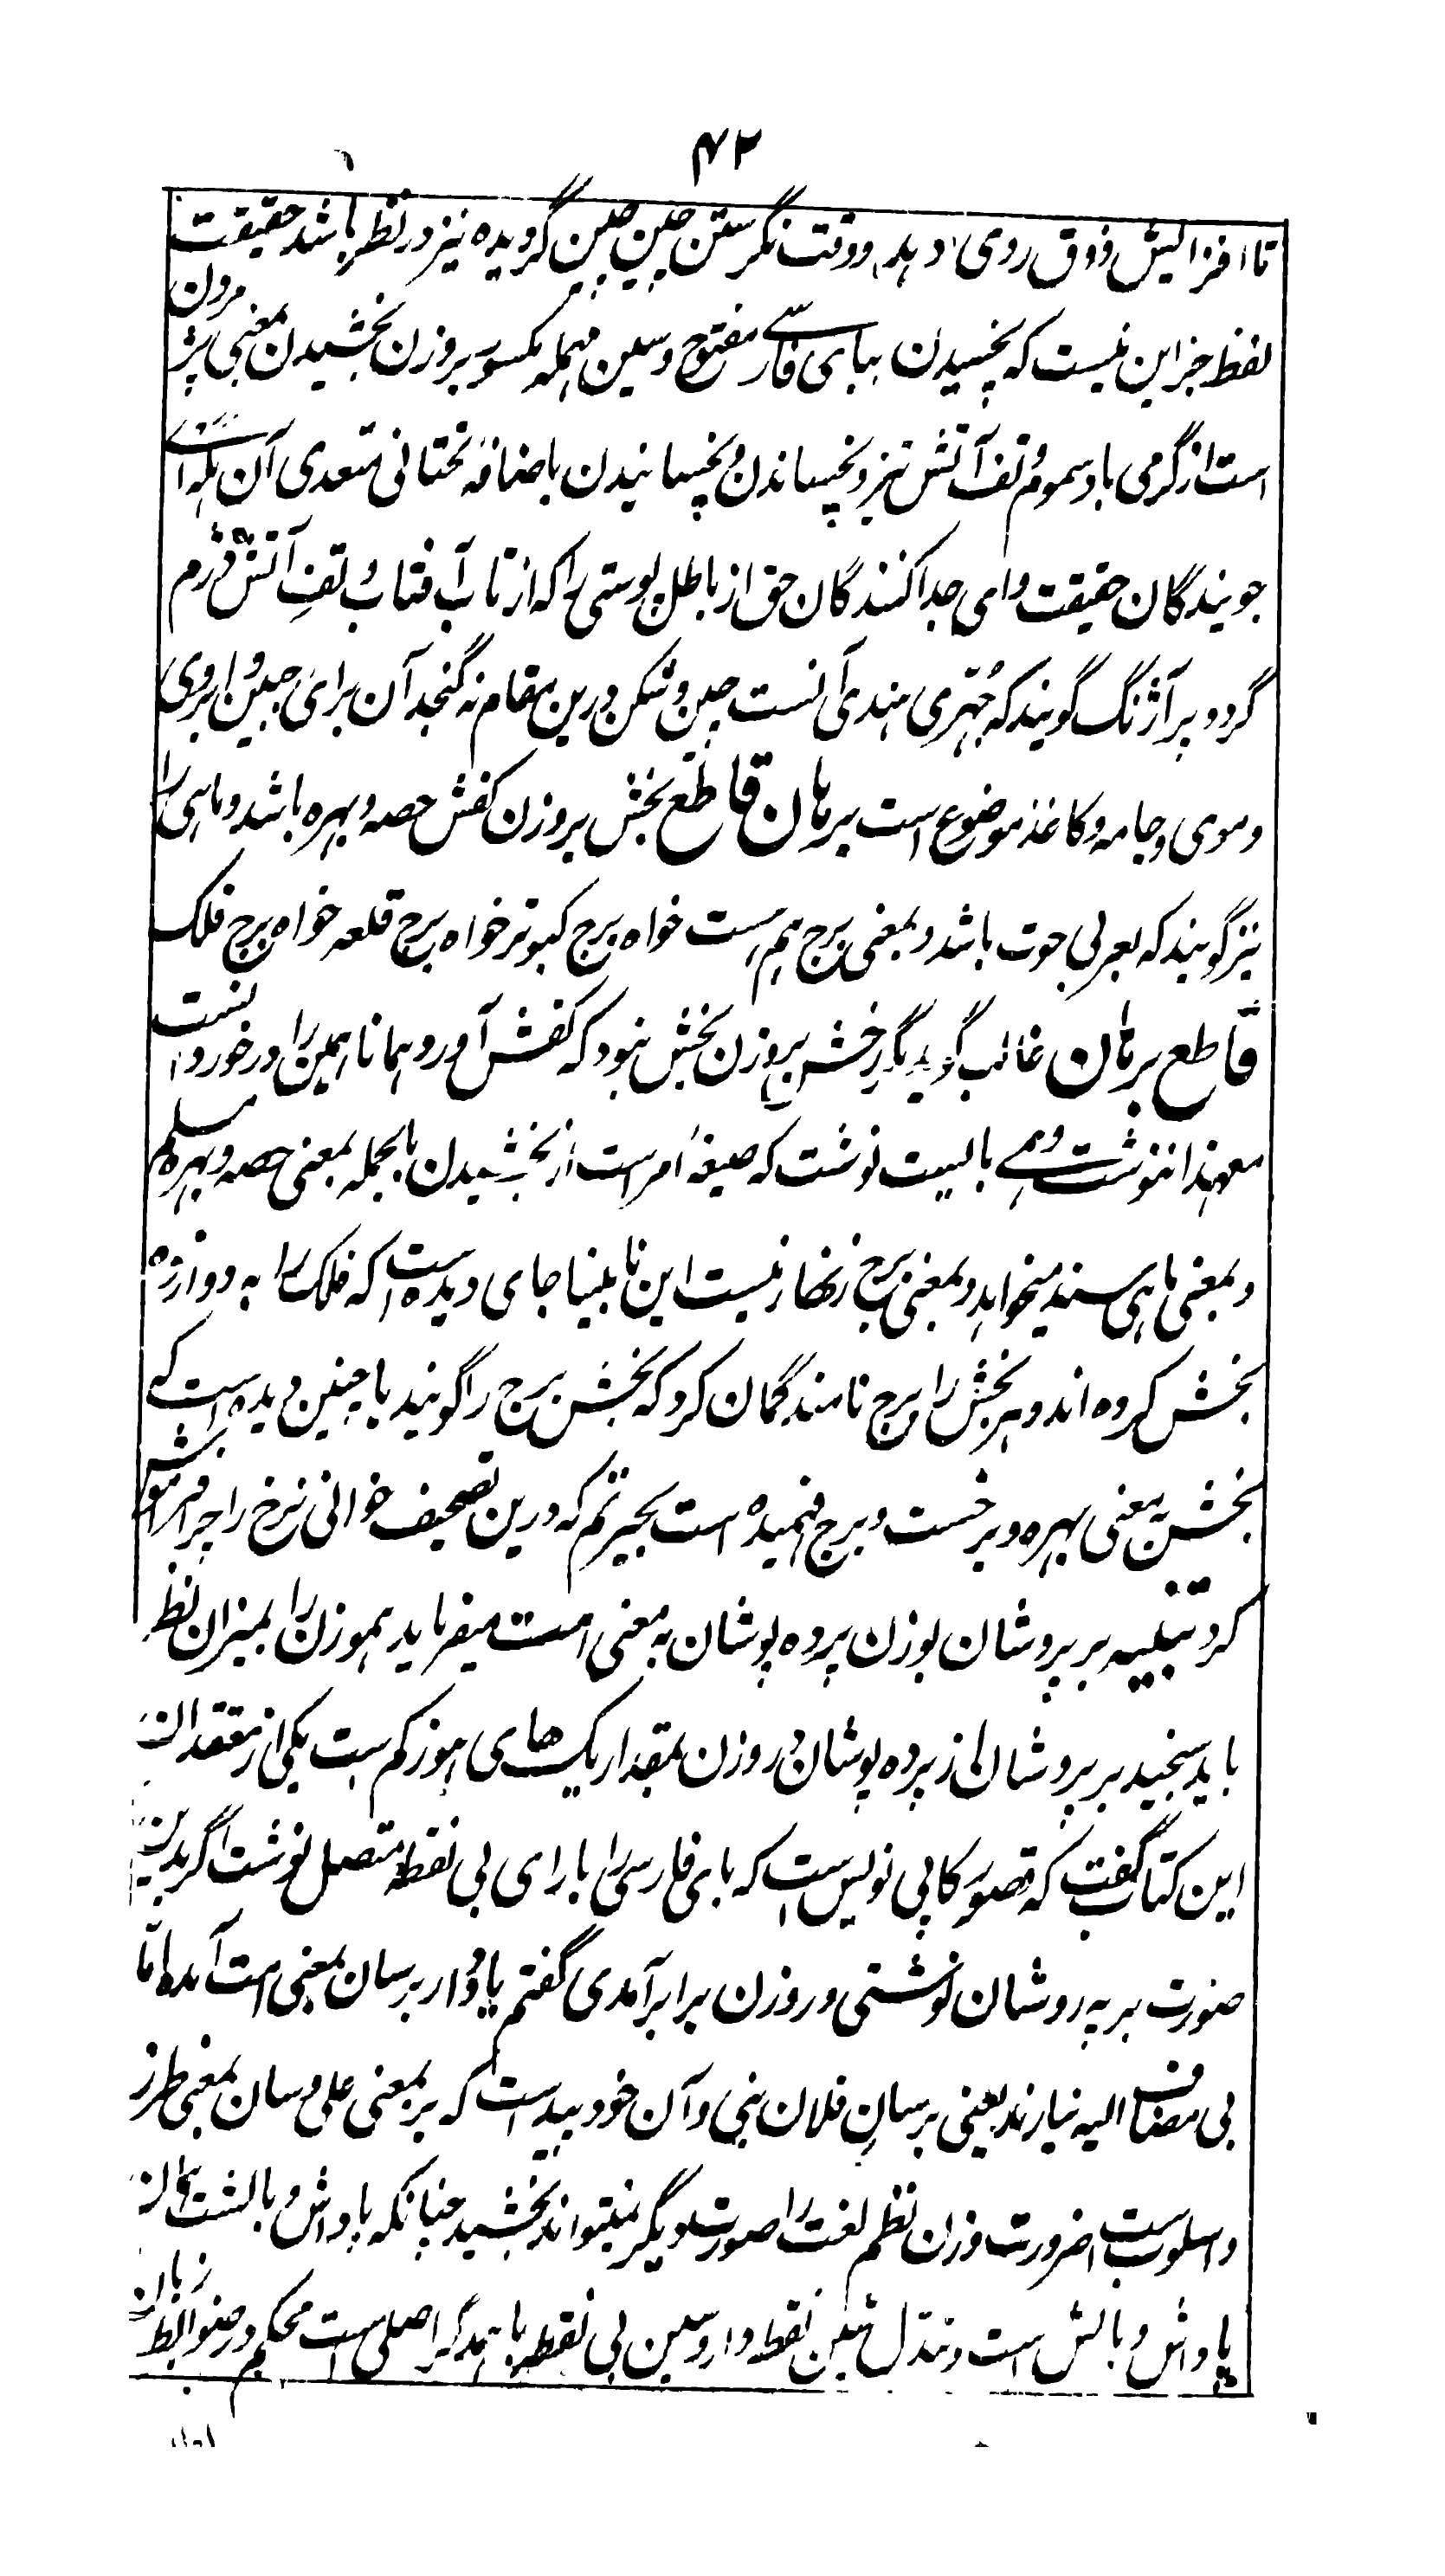 ۴۲
تا افزایش ذوق روی دهد و وقت نگرستن چین چین گردیده نیز در نظر باشد حقیقت
لفظ جز این نیست که پخسیدن ببای فارسی مفتوح و سین مهمله مکسور بروزن بخشیدن بمعنی پژمردن
است از گرمی باد سموم و تف آتش تیز و پخساندن و پخسانیدن باضافهٔ تحتانی متعدی آن بلکه ای
جویندگان حقیقت و ای جدا کنندگان حق از باطل پوستی را که از تاب آفتاب و تف آتش دژم
گردد پر آژنگ گویند که جُهرّی هندی آنست چین و شکن درین مقام نه گنجد آن برای جبین و ابروی
و موی و جامه و کاغذ موضوع است برهان قاطع بخش بروزن کفش حصه و بهره باشد و ماهی را
نیز گویند که بعربی حوت باشد و بمعنی برج هم هست خواه برج کبوتر خواه برج قلعه خواه برج فلک
قاطع برهان غالب گوید مگر رخش بروزن بخش نبود که کفش آورد همانا همین را درخور دانست
معهذا ننوشت و می بایست نوشت که صیغهٔ امر است از بخشیدن بالجمله بمعنی حصه و بهره مسلم
و بمعنی ماهی سند میخواهد و بمعنی برج زنهار نیست این نابینا جای دیده است که فلک را به دوازده
بخش کرده اند و هر بخش را برج نامند گمان کرد که بخش برج را گویند یا چنین دیده است که
بخش به معنی بهره و برخست و برج فهمیده است بحیرتم که درین تصحیف خوانی نرخ را چرا فراموش
کرد تنبیه بر بروشان بوزن پرده پوشان به معنی امت میفرماید هموزن را بمیزان نظر
باید سنجید بر بروشان از پرده پوشان در وزن بمقدار یک های هوز کم است یکی از معتقدان
این کتاب گفت که قصور کاپی نویس است که بای فارسی را با رای بی نقطه متصل نوشت اگر بدین
صورت بر په روشان نوشتی در وزن برابر آمدی گفتم یاد دار بر سان بمعنی امت آمده اما
بی مضاف الیه نیارند یعنی بر سانِ فلان نبی و آن خود پیداست که بر بمعنی علی و سان بمعنی طرز
و اسلوب است ضرورت وزن نظم لغت را صورت دیگر نمیتواند بخشید چنانکه پاداش و بالشت همان
پاداش و بالش است و تبدل شین نقطه دار و سین بی نقطه با همدگر اصلی است محکم در ضوابط زبان